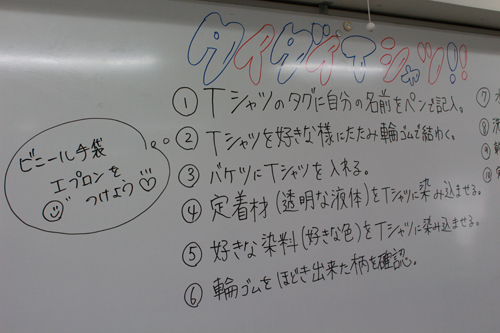 タイダイTシャツ!!
① Tシャツのタグに自分の名前をペンで記入。
② Tシャツを好きな様にたたみ輪ゴムで結わく。
③ バケツにTシャツを入れる。
④ 定着材(透明な液体)をTシャツに染み込ませる。
⑤ 好きな染料(好きな色)をTシャツに染み込ませる。
⑥ 輪ゴムをほどき出来た柄を確認。
ビニール手袋
エプロンを
つけよう
⑦
⑧
⑨
⑩